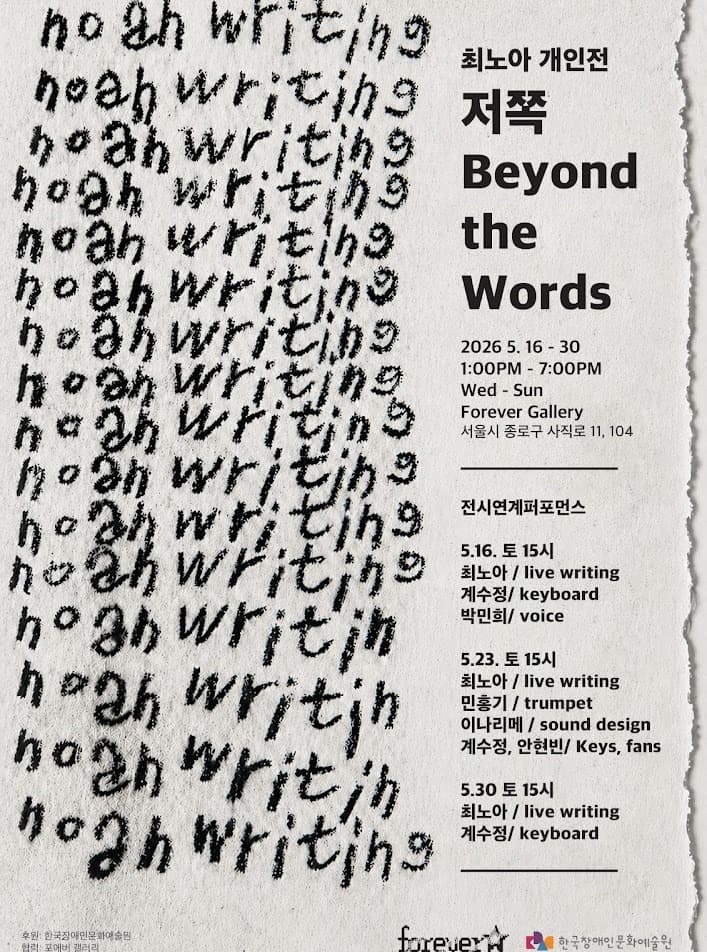 noah writing
noah writing
noah writing
noah writing
noah writing
noah writing
noah writing
noah writing
noah writing
noah writing
noah writing
noah writing
noah writin
noah writin
noah writin
noah writing
최노아 개인전
저쪽
Beyond
the
Words
2026 5. 16 - 30
1:00PM - 7:00PM
Wed - Sun
Forever Gallery
서울시 종로구 사직로 11, 104
전시연계퍼포먼스
5.16. 토 15시
최노아 / live writing
계수정/ keyboard
박민희/ voice
5.23. 토 15시
최노아 / live writing
민홍기 / trumpet
이나리메 / sound design
계수정, 안현빈/ Keys, fans
5.30 토 15시
최노아 / live writing
계수정/ keyboard
후원: 한국장애인문화예술원
협력: 포에버 갤러리
forever
한국장애인문화예술원